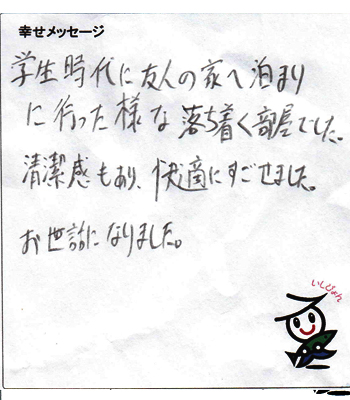 幸せメッセージ
学生時代に友人の家へ泊まり
に行った様な落ち着く部屋でした。
清潔感もあり、快適にすごせました。
お世話になりました。
いしじょん